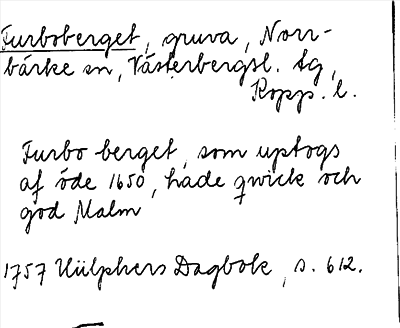 Turboberget, gruva, Norr-
bärke sn, Västerbergsl. tg,
Kopp. l.
Turbo berget, som uptogs
af öde 1650, hade qwick och
god Malm
1757 Hülphers Dagbok, s. 612.